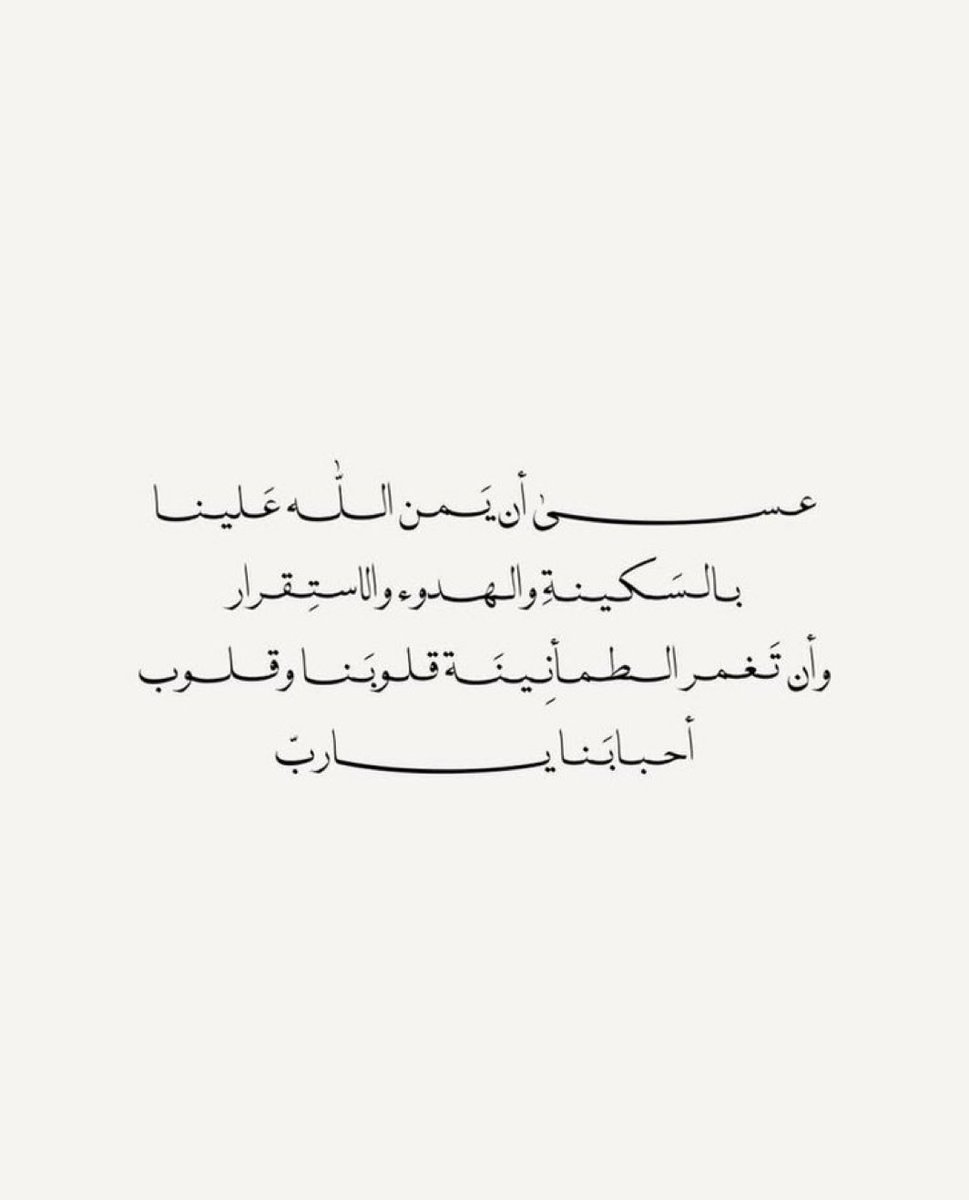 عسىٰ أن يَمن اللّٰه عَلينا
بالسَكينةِ والهدوء والاستِقرار
وأن تَغمر الطمأنِينَة قلوبَنا وقلوب
أحبابَنا ياربّ